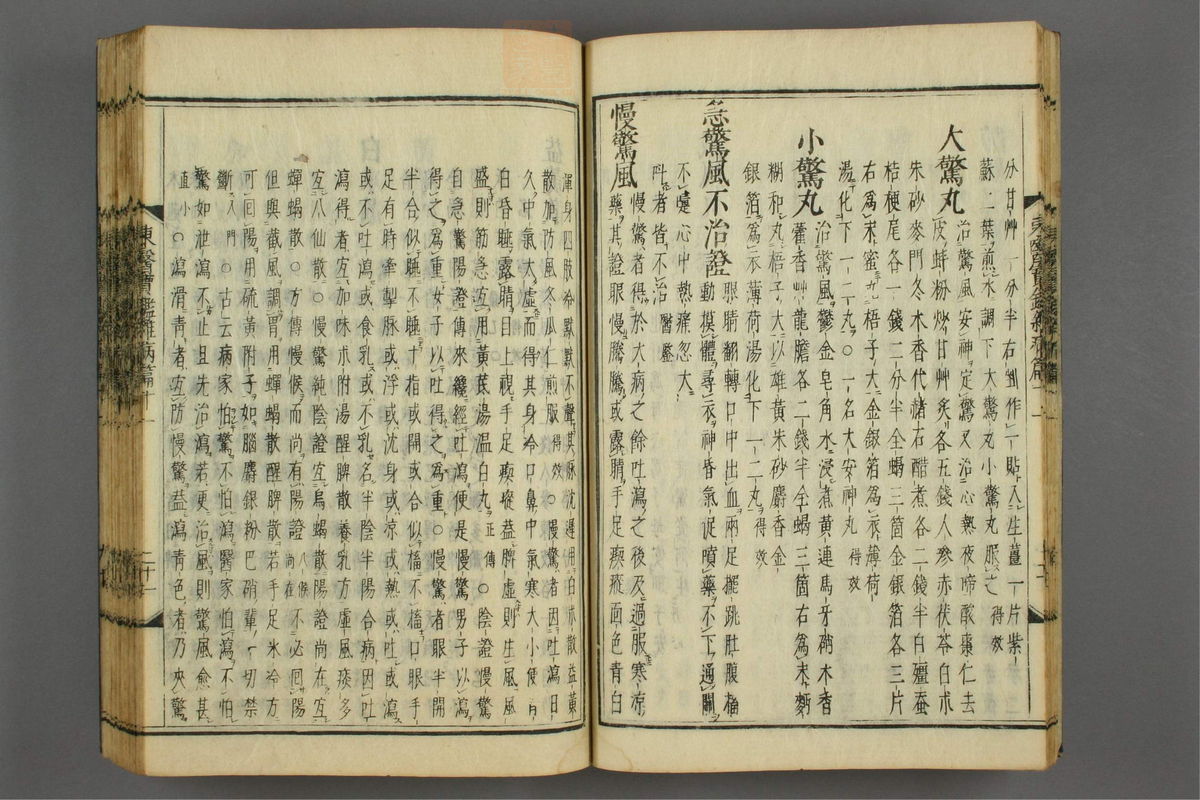 分甘艸一分半右剉作一貼入生薑一片紫
蘇二葉煎水調下大驚丸小驚丸服之得效
大驚丸治驚風安神定驚又治心熱夜啼酸棗仁去
皮蚌粉炒甘艸炙各五錢人參赤茯苓白朮
朱砂麥門冬木香代赭石醋煮各二錢半白殭蚕
桔梗尾各一錢二分半全蝎三箇金銀箔各三片
右爲末蜜丸梧子大金銀箔爲衣薄荷
湯化下一二丸○一名大安神丸得效
小驚丸治驚風鬱金皂角水浸煮黃連馬牙硝木香
藿香艸龍膽各二錢半全蝎三箇右爲末麪
糊和丸梧子大以雄黃朱砂麝香金
銀箔爲衣薄荷湯化下一二丸得效
急驚風不治證眼睛翻轉口中出血兩足擺跳肚腹搐
動摸體尋衣神昏氣促噴藥不下通關
不嚏心中熱痒忽大
呌者皆不治醫鑑
慢驚風慢驚者得於大病之餘吐瀉之後及過服寒凉
藥其證眼慢騰騰或露睛手足瘈瘲面色青白
渾身四肢冷默默不聲其脉沈遲用白朮散益黃
散加防風冬瓜仁煎服得效○慢驚者因吐瀉日
久中氣太虛而得其身冷口鼻中氣寒大小便
白昏睡露睛目上視手足瘈瘲益脾虛則生風風
盛則筋急宜用黃芪湯温白丸正傳○陰證慢驚
自急驚陽證傳來纔經吐瀉便是慢驚男子以瀉
得之爲重女子以吐得之爲重○慢驚者眼半開
半合似睡不睡十指或開或合似搐不搐口眼手
足有時牽掣脉或浮或沈身或凉或熱或吐或瀉
或不吐瀉或食乳或不乳名半陰半陽合病因吐
瀉得者宜加味朮附湯醒脾散養乳方虛風痰多
宜八仙散○慢驚純陰證宜烏蝎散陽證尚在宜
蟬蝎散○方傳慢候而尚有陽證八候尚在不必回陽
但與截風調胃用蟬蝎散醒脾散若手足氷冷方
可回陽用硫黃附子如腦麝銀粉巴硝輩一切禁
斷入門○古云病家怕驚不怕瀉醫家怕瀉不怕
驚如泄瀉不止且先治瀉若更治風則驚風愈甚
直小○瀉滑青者宜防慢驚益瀉青色者乃夾驚
東醫寶鑑雜病篇十一
二十一